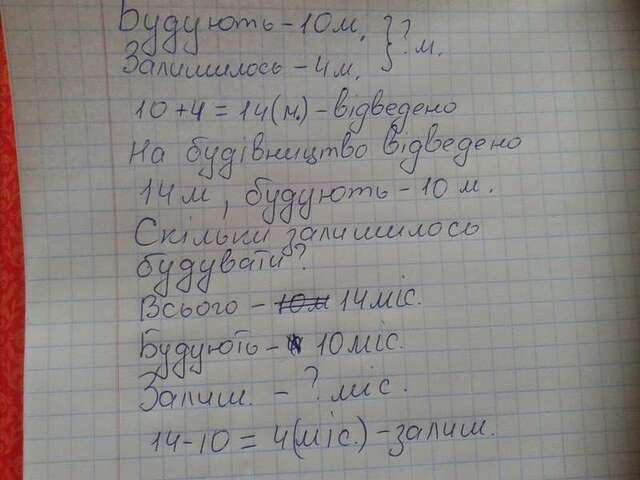 Будують – 10 м. } ? м.
Залишилось – 4 м.
10 + 4 = 14 (м.) – відведено
На будівництво відведено
14 м, будують – 10 м.
Скільки залишилось
будувати?
Всього – 10м 14 міс.
Будують – 10 міс.
Залиш. – ? міс.
14 – 10 = 4 (міс.) – залиш.